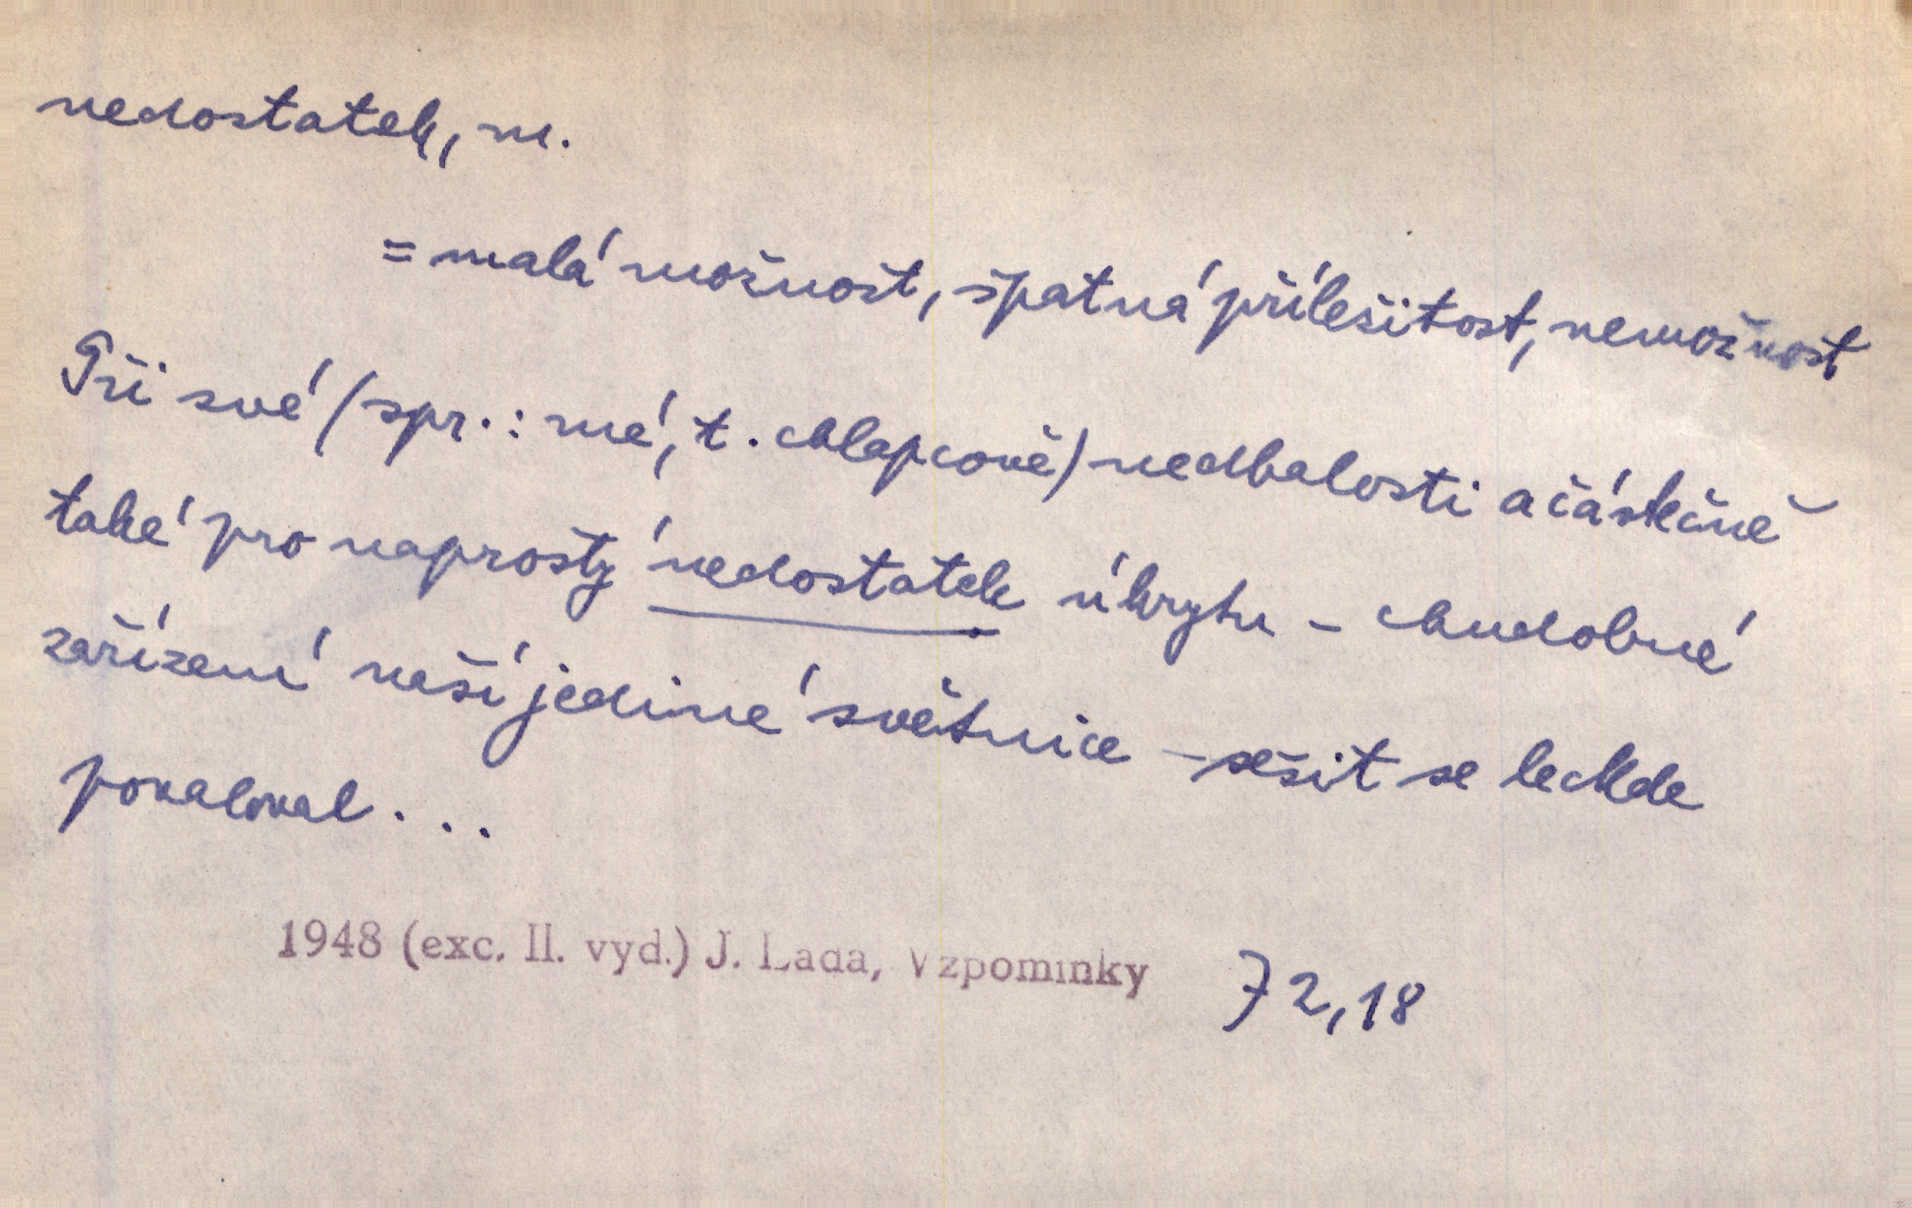 nedostatek, m.
= malá možnost, špatná příležitost, nemožnost
Při své (spr.: mé, t. chlapcově) nedbalosti a částečně
také pro naprostý nedostatek úkrytu – chudobné
zařízení naší jediné světnice – sešit se leckde
povaloval . . .
1948 (exc. II. vyd.) J. Lada, Vzpomínky 72,18